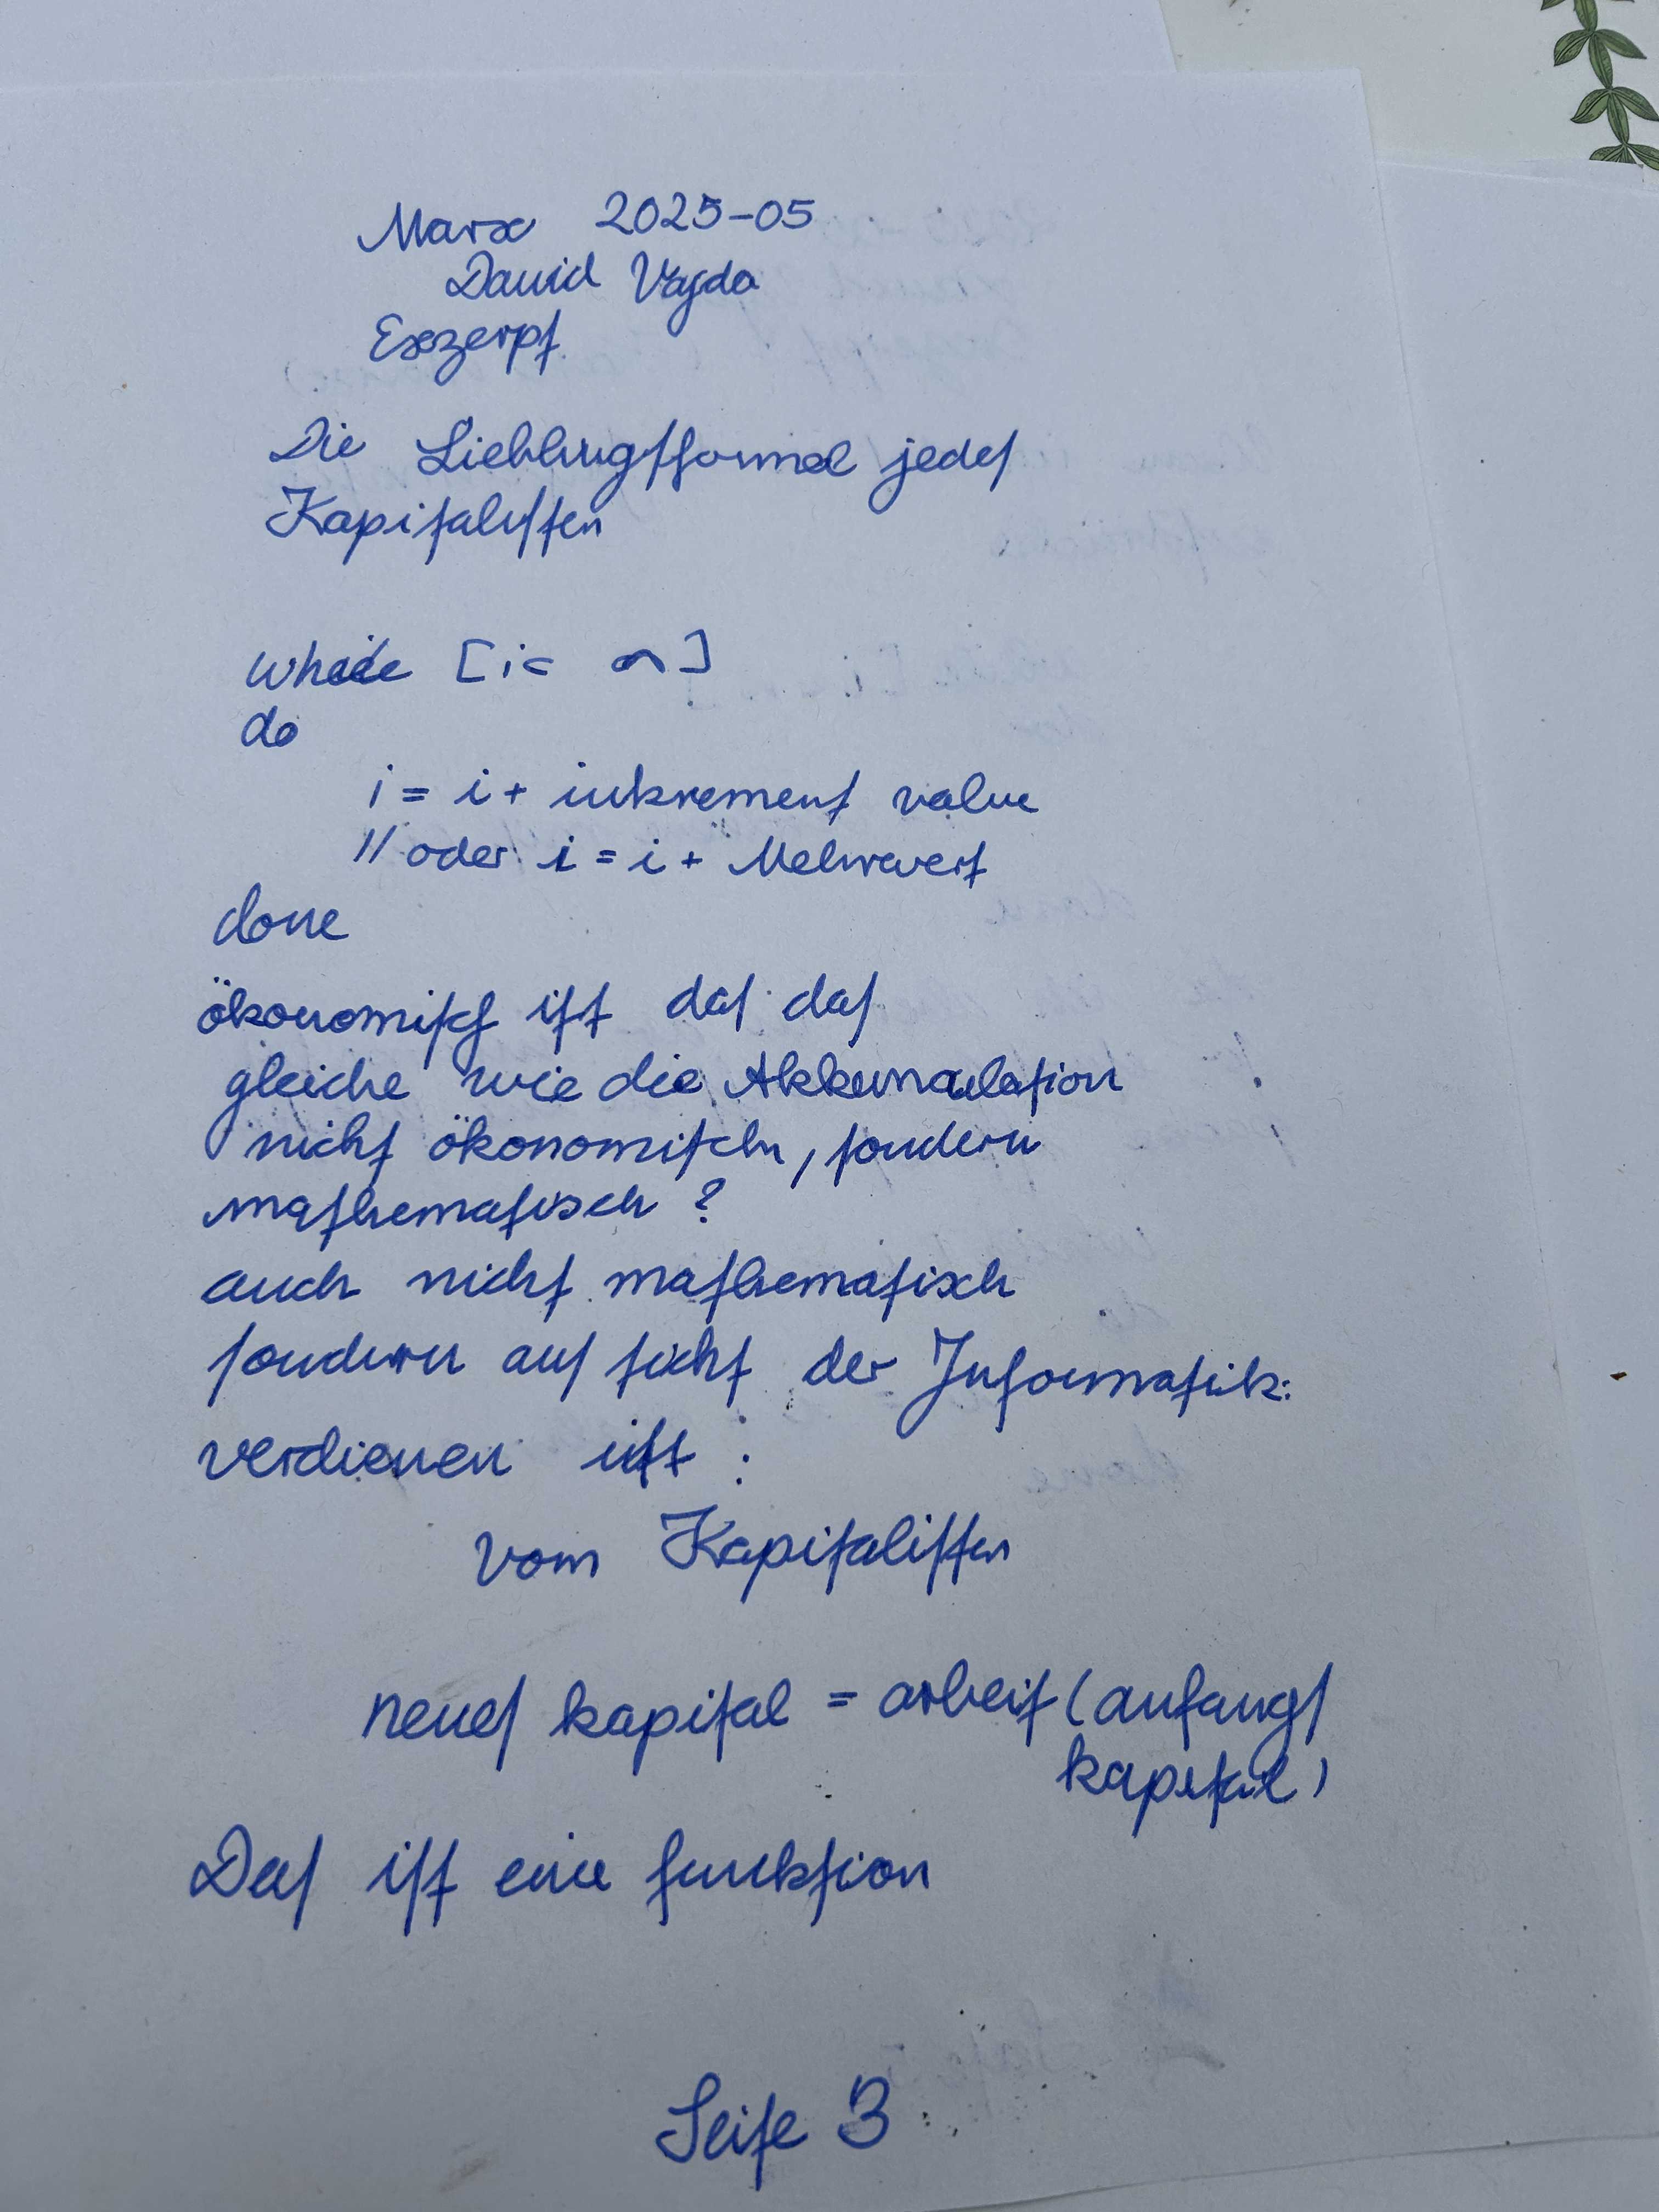 Marx 2025-05
David Vajda
Exzerpt
Die Lieblingsformel jedes
Kapitalisten
while [i= ]
do
i = i + inkrement value
// oder i = i + Mehrwert
done
ökonomisch ist das das
gleiche wie die Akkumulation
nicht ökonomisch, sondern
mathematisch ?
auch nicht mathematisch
sondern aus sicht der Informatik:
verdienen ist :
vom Kapitalisten
neues kapital = arbeit (anfangs
kapital)
Das ist eine funktion
Seite 3